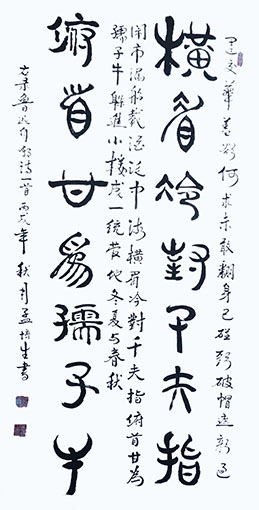 運交華蓋欲何求未敢翻身已碰頭破帽遮顏過
橫眉冷對千夫指
鬧市漏船載酒泛中流橫眉冷對千夫指俯首甘為
孺子牛躲進小樓成一統管他冬夏與春秋
俯首甘爲孺子牛
右录魯迅自嘲詩一首丙戌年秋月孟培生書